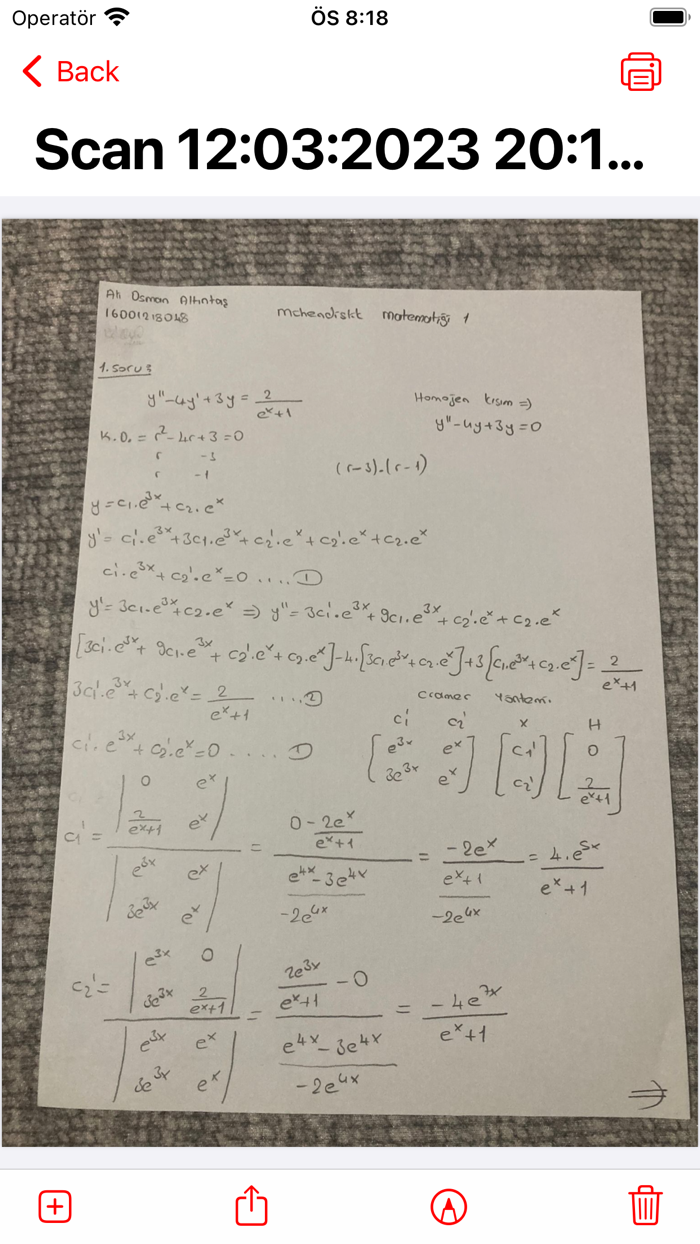 Operatör ÖS 8:18
Back
Scan 12:03:2023 20:1...
Ali Osman Altıntaş
16001218048
Mühendislik matematiği 1
1. Soru:
y''-4y'+3y = 2/(e^x+1)
Homojen kısım =>
y''-4y+3y=0
K.D. = r^2-4r+3=0
r -3
r -1
(r-3).(r-1)
y=c1.e^3x+c2.e^x
y'= c1'.e^3x+3c1.e^3x+c2'.e^x+c2'.e^x+c2.e^x
c1'.e^3x+c2'.e^x=0 .... ①
y'=3c1.e^3x+c2.e^x => y''=3c1'.e^3x+9c1.e^3x+c2'.e^x+c2.e^x
[3c1'.e^3x+9c1.e^3x+c2'.e^x+c2.e^x]-4.[3c1.e^3x+c2.e^x]+3[c1.e^3x+c2.e^x]= 2/(e^x+1)
3c1'.e^3x+c2'.e^x= 2/(e^x+1) .... ②
Cramer Yöntem.
c1'.e^3x+c2'.e^x=0 .... ①
c1' c2' x H
[e^3x e^x; 3e^3x e^x] [c1'; c2'] [0; 2/(e^x+1)]
c1' = |0 e^x; 2/(e^x+1) e^x| / |e^3x e^x; 3e^3x e^x| = (0-2e^x/(e^x+1)) / (e^4x-3e^4x) / -2e^4x = (-2e^x/(e^x+1)) / -2e^4x = 4.e^5x/(e^x+1)
c2' = |e^3x 0; 3e^3x 2/(e^x+1)| / |e^3x e^x; 3e^3x e^x| = (2e^3x/(e^x+1) - 0) / (e^4x-3e^4x) / -2e^4x = -4e^7x/(e^x+1)
=>